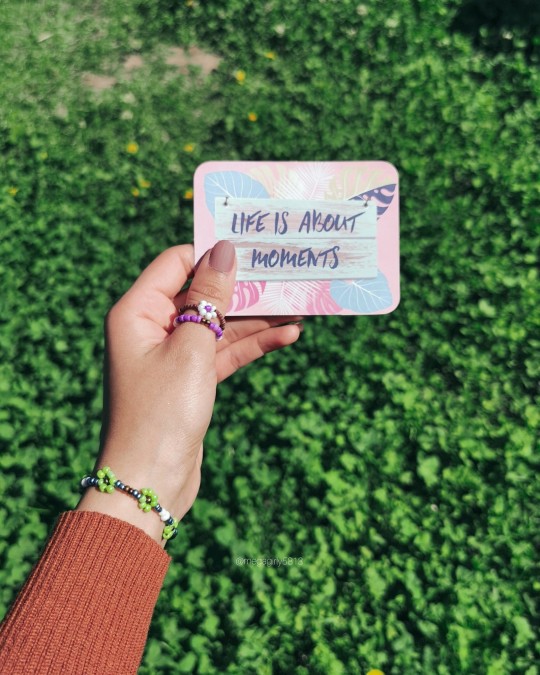 LIFE IS ABOUT
MOMENTS